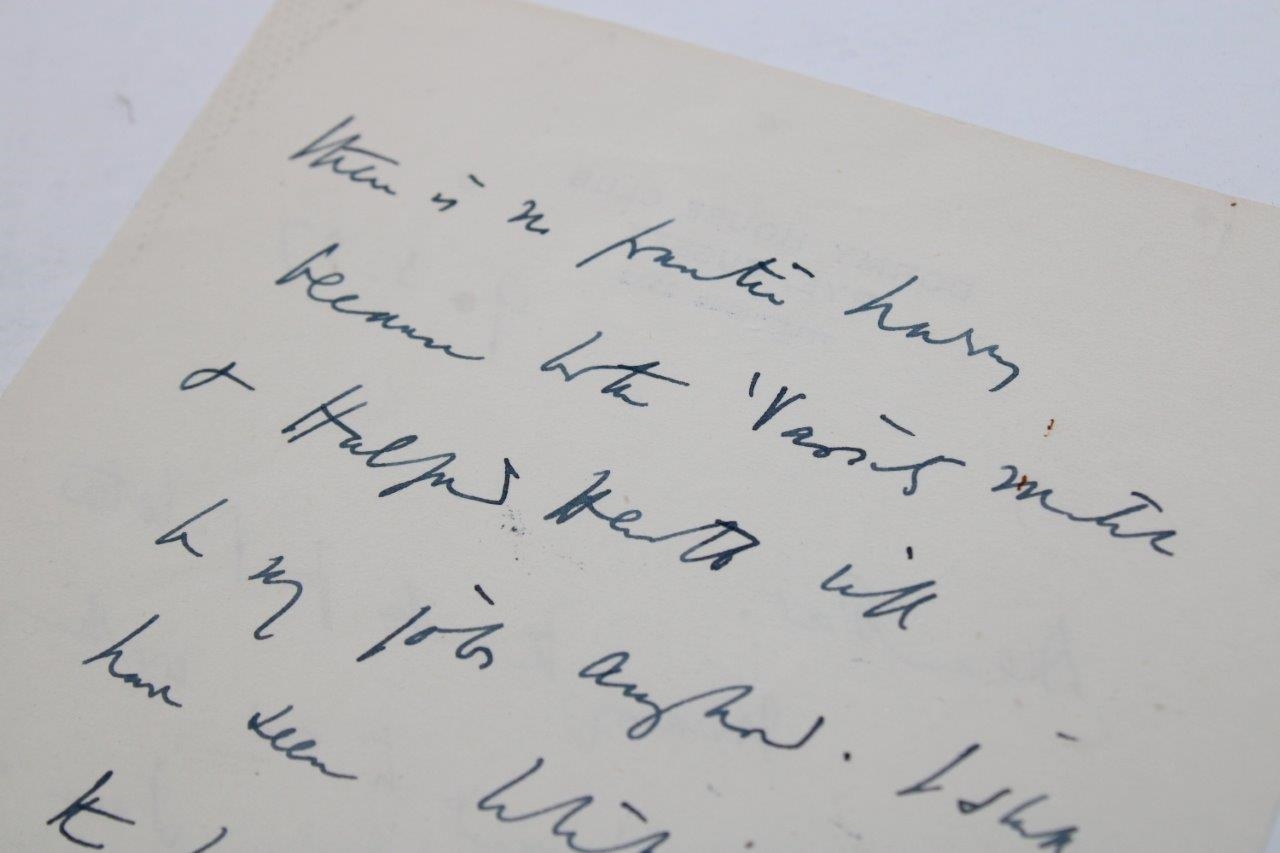 There is no frantic hurry
because both 'Varsity match
& Halford Hewitt will
be my jobs anyhow. I shall
have seen
the